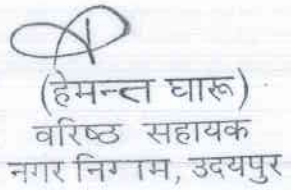 (हेमन्त घारू)
वरिष्ठ सहायक
नगर निगम, उदयपुर